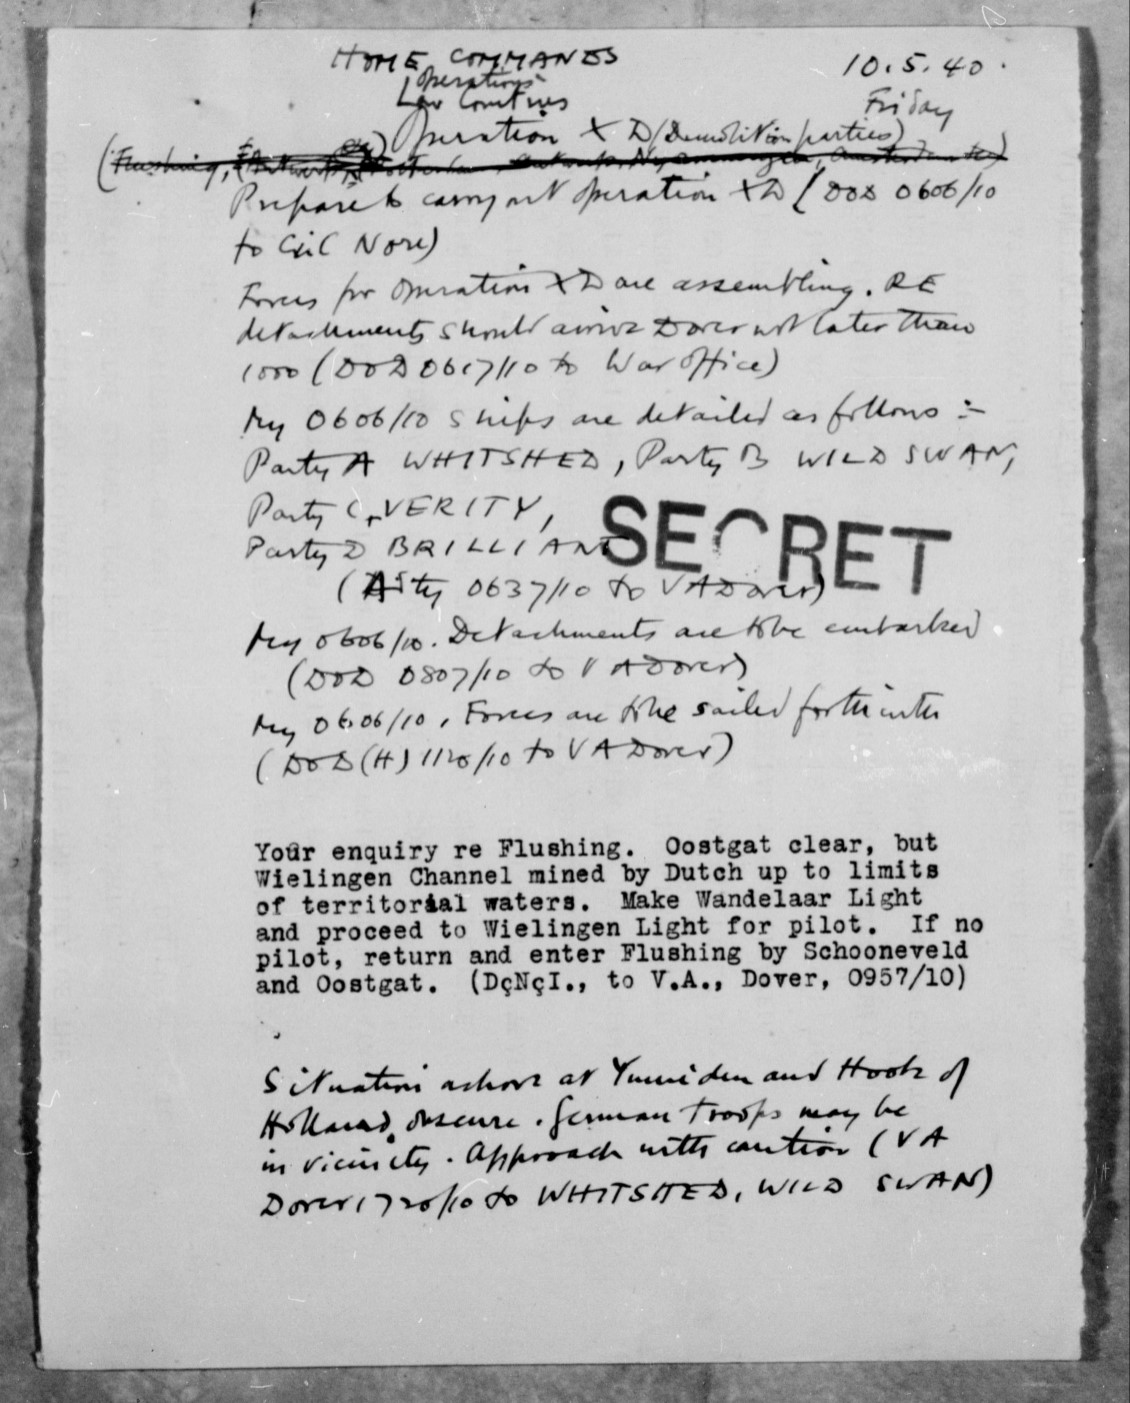 HOME COMMANDS
10.5.40.
Operations
Low Countries
Friday
Operation XD (Demolition parties)
(Flushing, Amsterdam etc)
Prepare to carry out operation XD (DOD 0606/10
to CinC Nore)
Forces for operation XD are assembling. RE
detachments should arrive Dover not later than
1000 (DOD 0617/10 to War Office)
My 0606/10 ships are detailed as follows :-
Party A WHITSHED, Party B WILD SWAN,
Party C, VERITY,
Party D BRILLIANT
SECRET
(0637/10 to VADover)
My 0606/10. Detachments are to be embarked
(DOD 0807/10 to VADover)
My 0606/10, Forces are to be sailed forthwith
(DOD(H) 1120/10 to VADover)
Your enquiry re Flushing. Oostgat clear, but
Wielingen Channel mined by Dutch up to limits
of territorial waters. Make Wandelaar Light
and proceed to Wielingen Light for pilot. If no
pilot, return and enter Flushing by Schooneveld
and Oostgat. (DçNçI., to V.A., Dover, 0957/10)
Situation ashore at Ymuiden and Hook of
Holland obscure. German troops may be
in vicinity. Approach with caution (VA
Dover 1720/10 to WHITSHED, WILD SWAN)